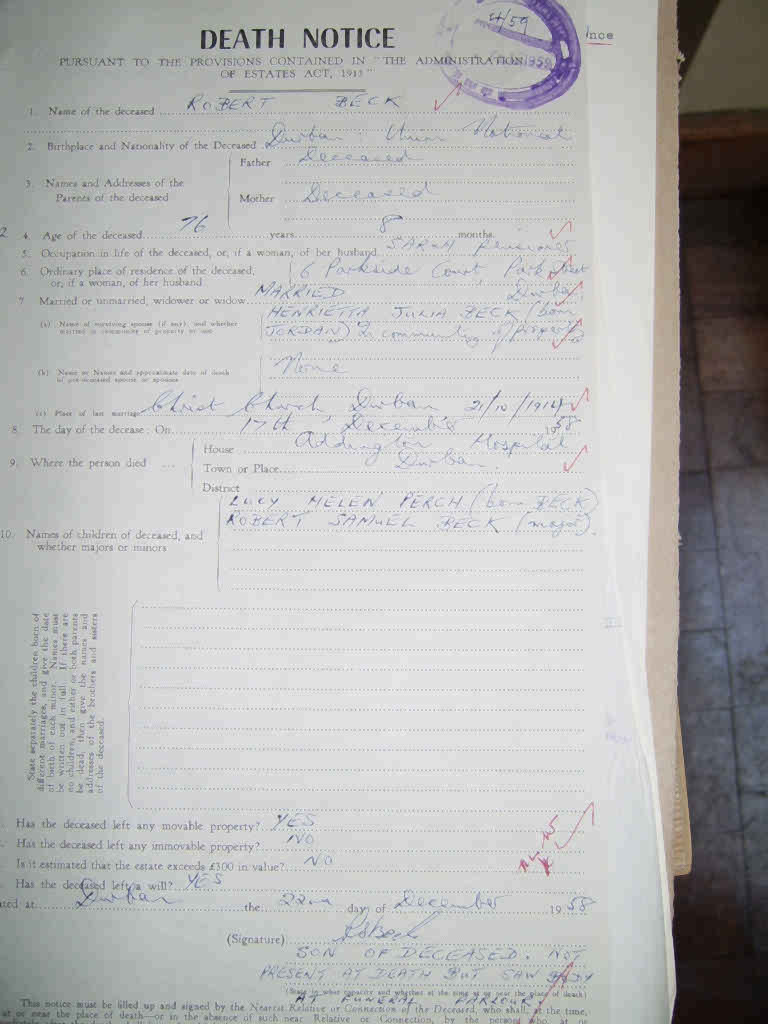 4/59
1959
nce
DEATH NOTICE
PURSUANT TO THE PROVISIONS CONTAINED IN "THE ADMINISTRATION
OF ESTATES ACT, 1913"
1. Name of the deceased ROBERT BECK
2. Birthplace and Nationality of the Deceased Durban: Union National
3. Names and Addresses of the Parents of the deceased
Father Deceased
Mother Deceased
4. Age of the deceased 76 years 8 months.
5. Occupation in life of the deceased, or, if a woman, of her husband SAR&H Pensioner
6. Ordinary place of residence of the deceased, 6 Parkside Court, Park Street
or, if a woman, of her husband Durban.
7 Married or unmarried, widower or widow MARRIED
(a) Name of surviving spouse (if any), and whether HENRIETTA JULIA BECK (born
married in community of property or not JORDAN) In community of property
(b) Name or Names and approximate date of death None
of pre-deceased spouse or spouses
(c) Place of last marriage Christ Church Durban 21/10/1914
8. The day of the decease: On 17th December 1958
9. Where the person died ...
House Addington Hospital
Town or Place Durban.
District
10. Names of children of deceased, and
whether majors or minors
LUCY HELEN PERCH (born BECK)
ROBERT SAMUEL BECK (major).
State separately the children born of
different marriages, and give the date
of birth of each minor. Names must
be written out in full. If there are
no children, and either or both parents
be dead, then give the names and
addresses of the brothers and sisters
of the deceased.
Has the deceased left any movable property? YES
Has the deceased left any immovable property? NO
Is it estimated that the estate exceeds £300 in value? NO
Has the deceased left a will? YES
ated at Durban the 22nd day of December 1958
(Signature) RSBeck
SON OF DECEASED. NOT
PRESENT AT DEATH BUT SAW BODY
(State in what capacity and whether at the time at or near the place of death)
AT FUNERAL PARLOUR
This notice must be filled up and signed by the Nearest Relative or Connection of the Deceased, who shall, at the time,
at or near the place of death—or in the absence of such near Relative or Connection, by the person who